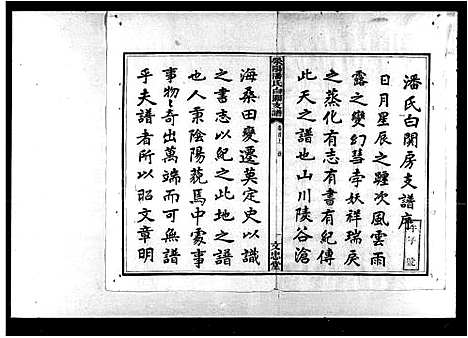 潘氏白關房支譜序
日月星辰之躔次風雲雨
露之變幻彗孛妖祥瑞戾
之蒸化有志有書有紀傳
此天之譜也山川陵谷滄
滎陽潘氏白關支譜
卷首上 序
一
文忠堂
海桑田變遷莫定史以識
之書志以紀之此地之譜
也人秉陰陽藐焉中處事
事物物奇出萬端而可無譜
乎夫譜者所以昭文章明